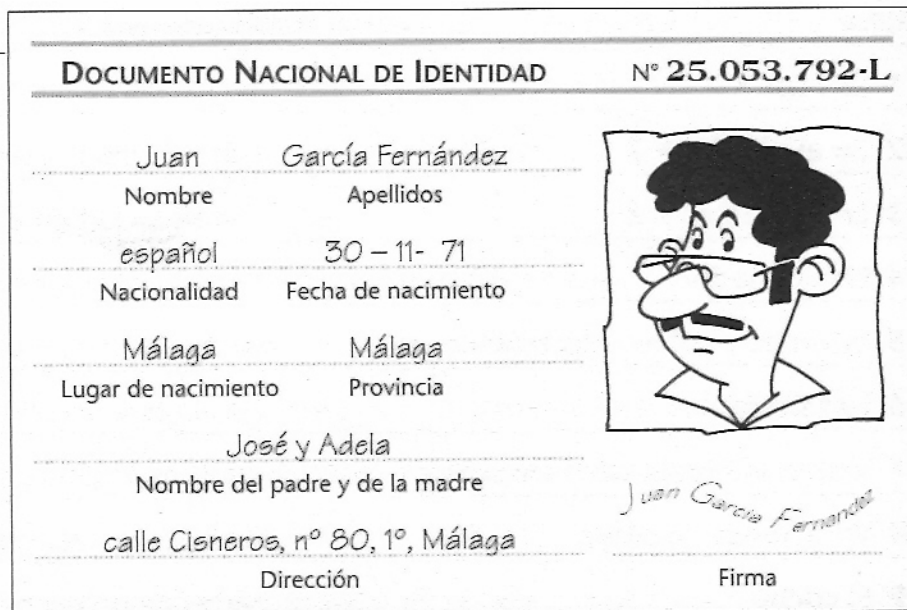 DOCUMENTO NACIONAL DE IDENTIDAD Nº 25.053.792-L
Juan García Fernández
Nombre Apellidos
español 30 – 11- 71
Nacionalidad Fecha de nacimiento
Málaga Málaga
Lugar de nacimiento Provincia
José y Adela
Nombre del padre y de la madre
Juan García Fernández
calle Cisneros, nº 80, 1º, Málaga
Dirección Firma